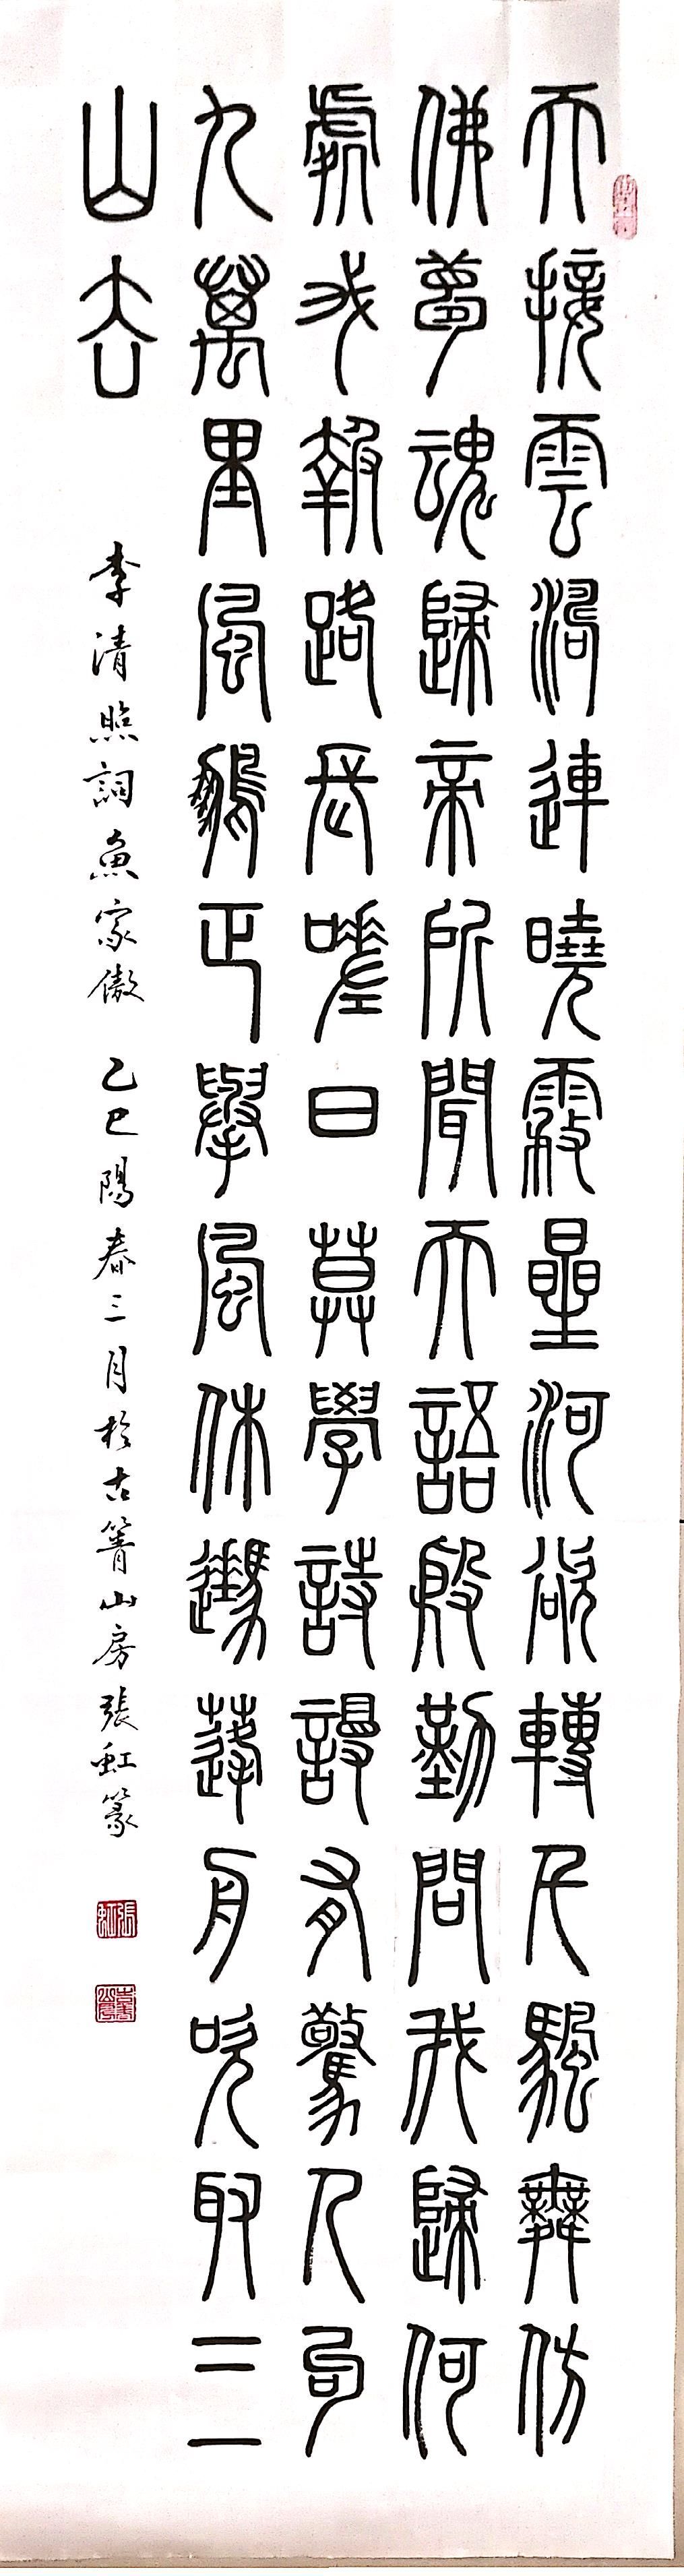 天接雲濤連曉霧星河欲轉千帆舞仿
佛夢魂歸帝所聞天語殷勤問我歸何
處我報路長嗟日莫學詩謾有驚人句
九萬里風鵬正舉風休住蓬舟吹取三
山去
李清照詞魚家傲 乙巳陽春三月於古箐山房張虹篆
張虹